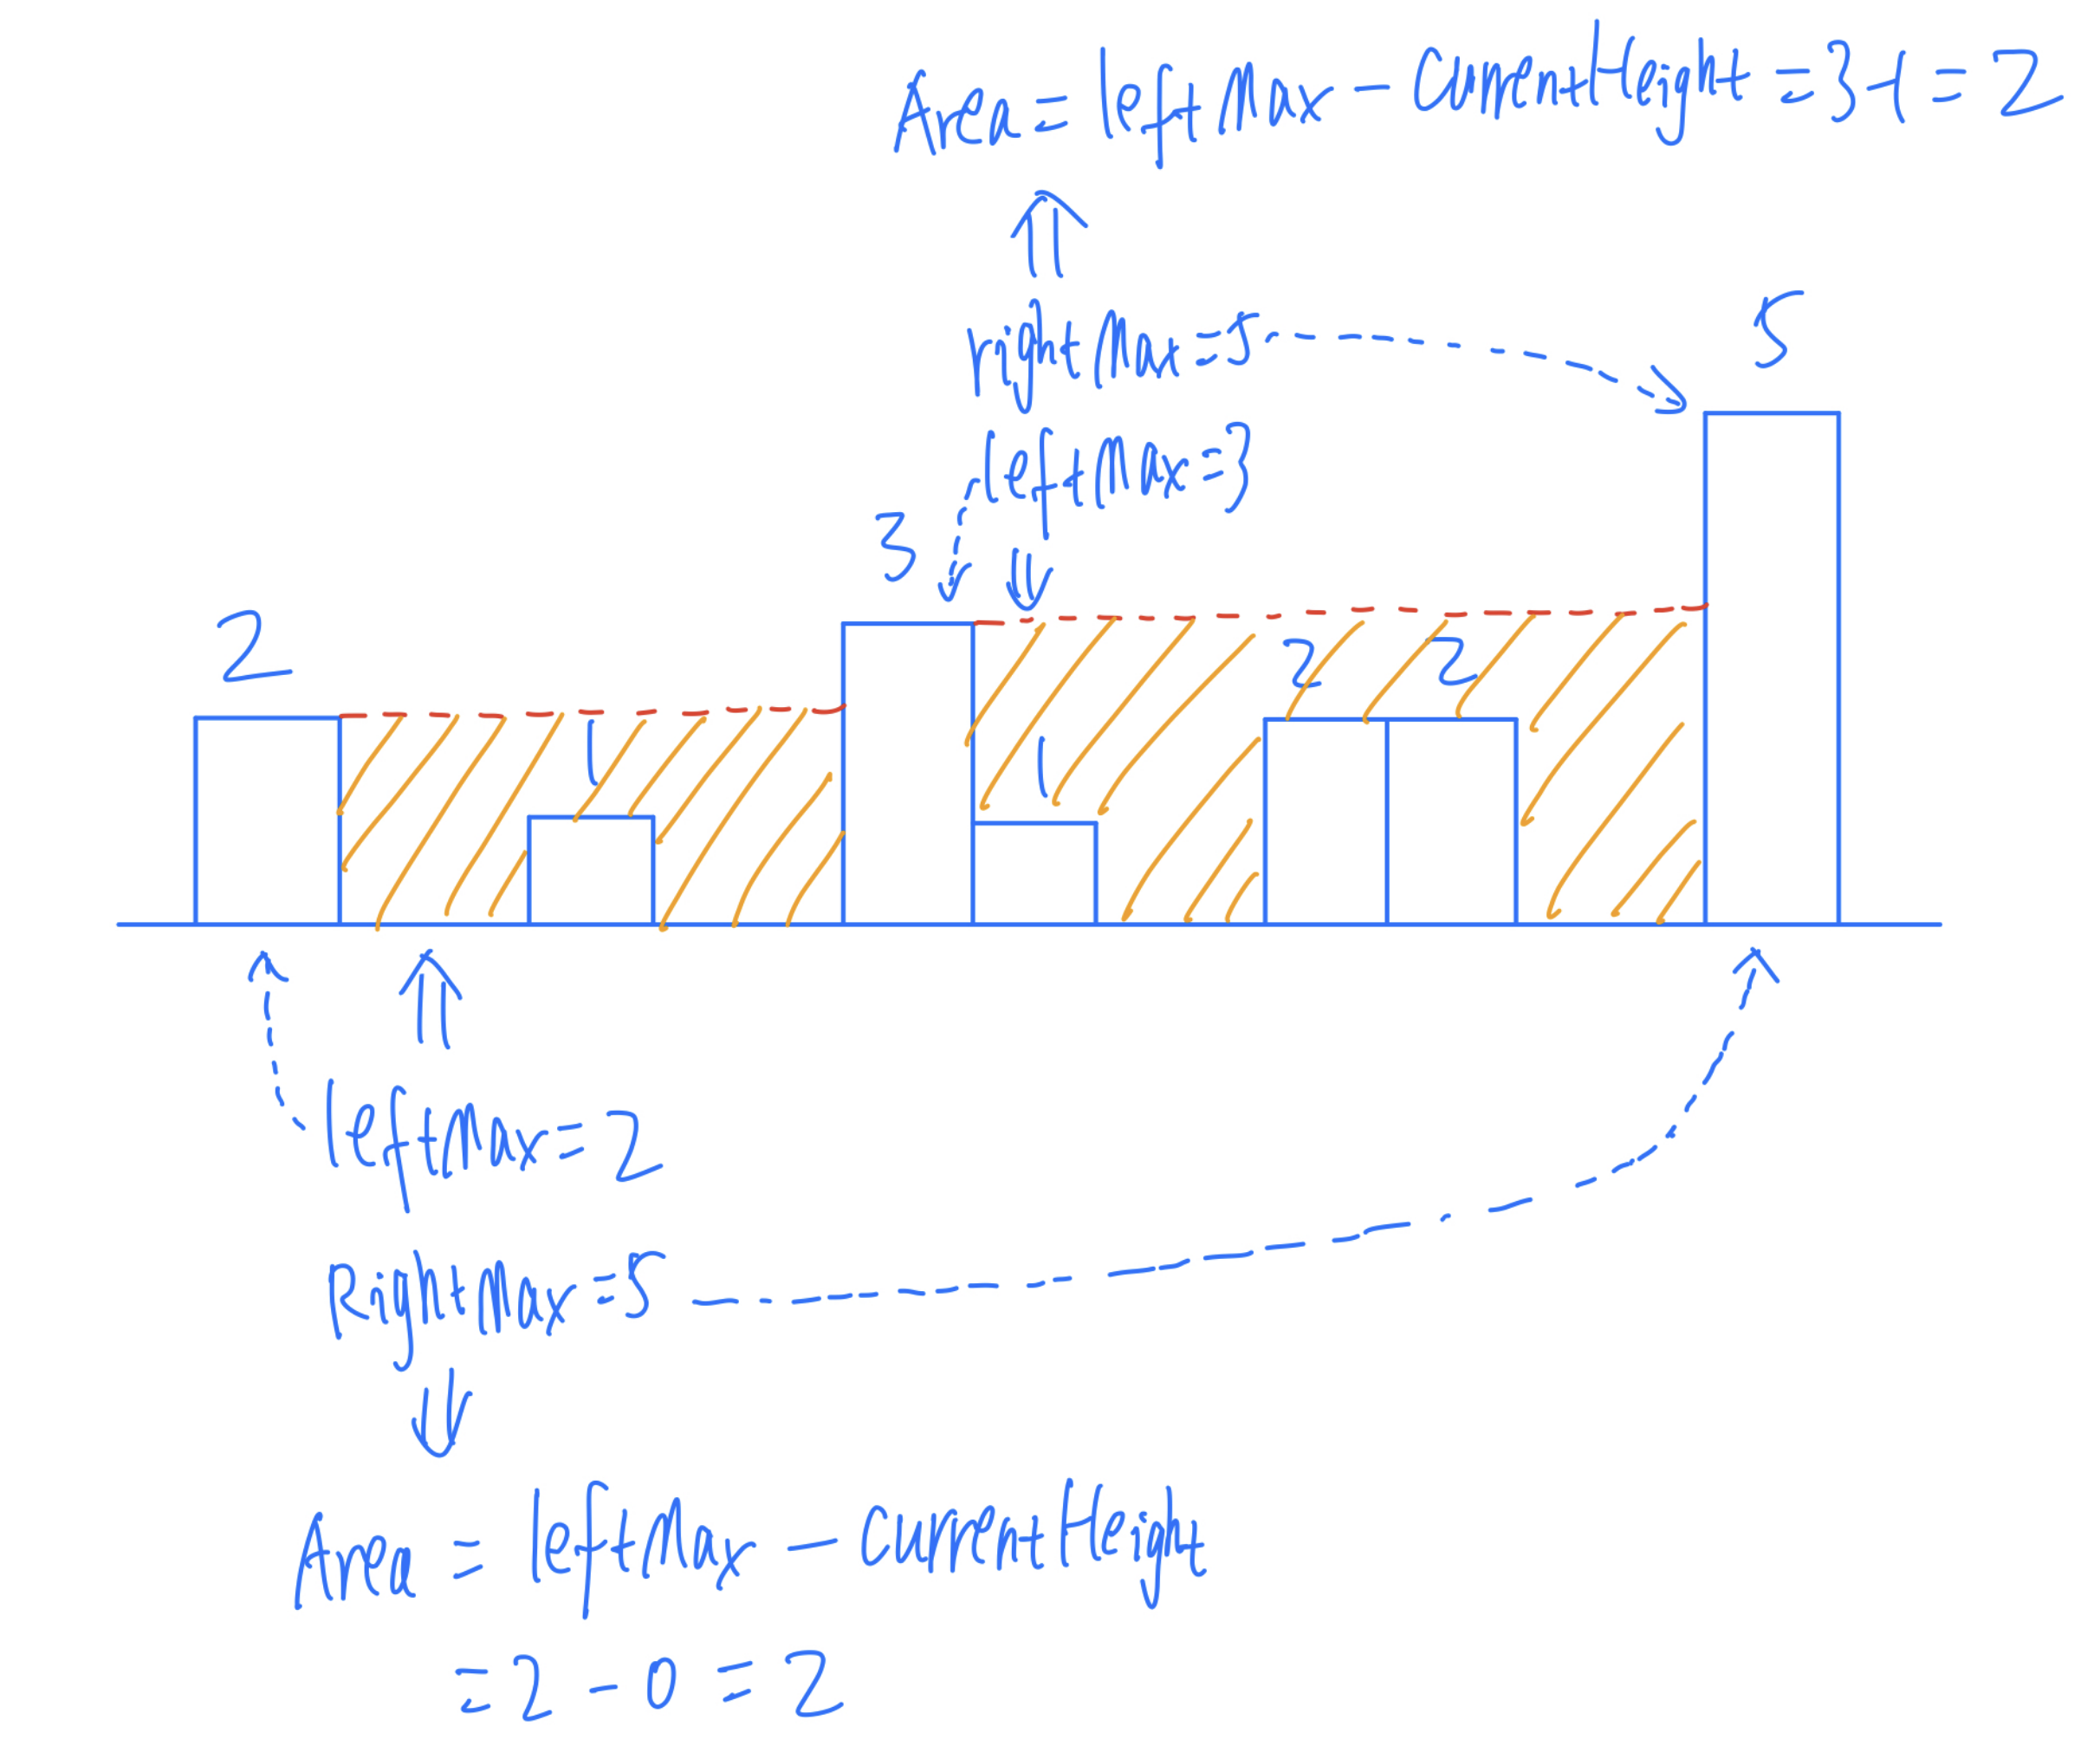 Area = leftMax - CurrentHeight = 3-1 = 2
rightMax = 5
5
leftMax = 3
3
2
2
2
1
1
leftMax = 2
RightMax = 5
Area = leftMax - CurrentHeight
= 2 - 0 = 2